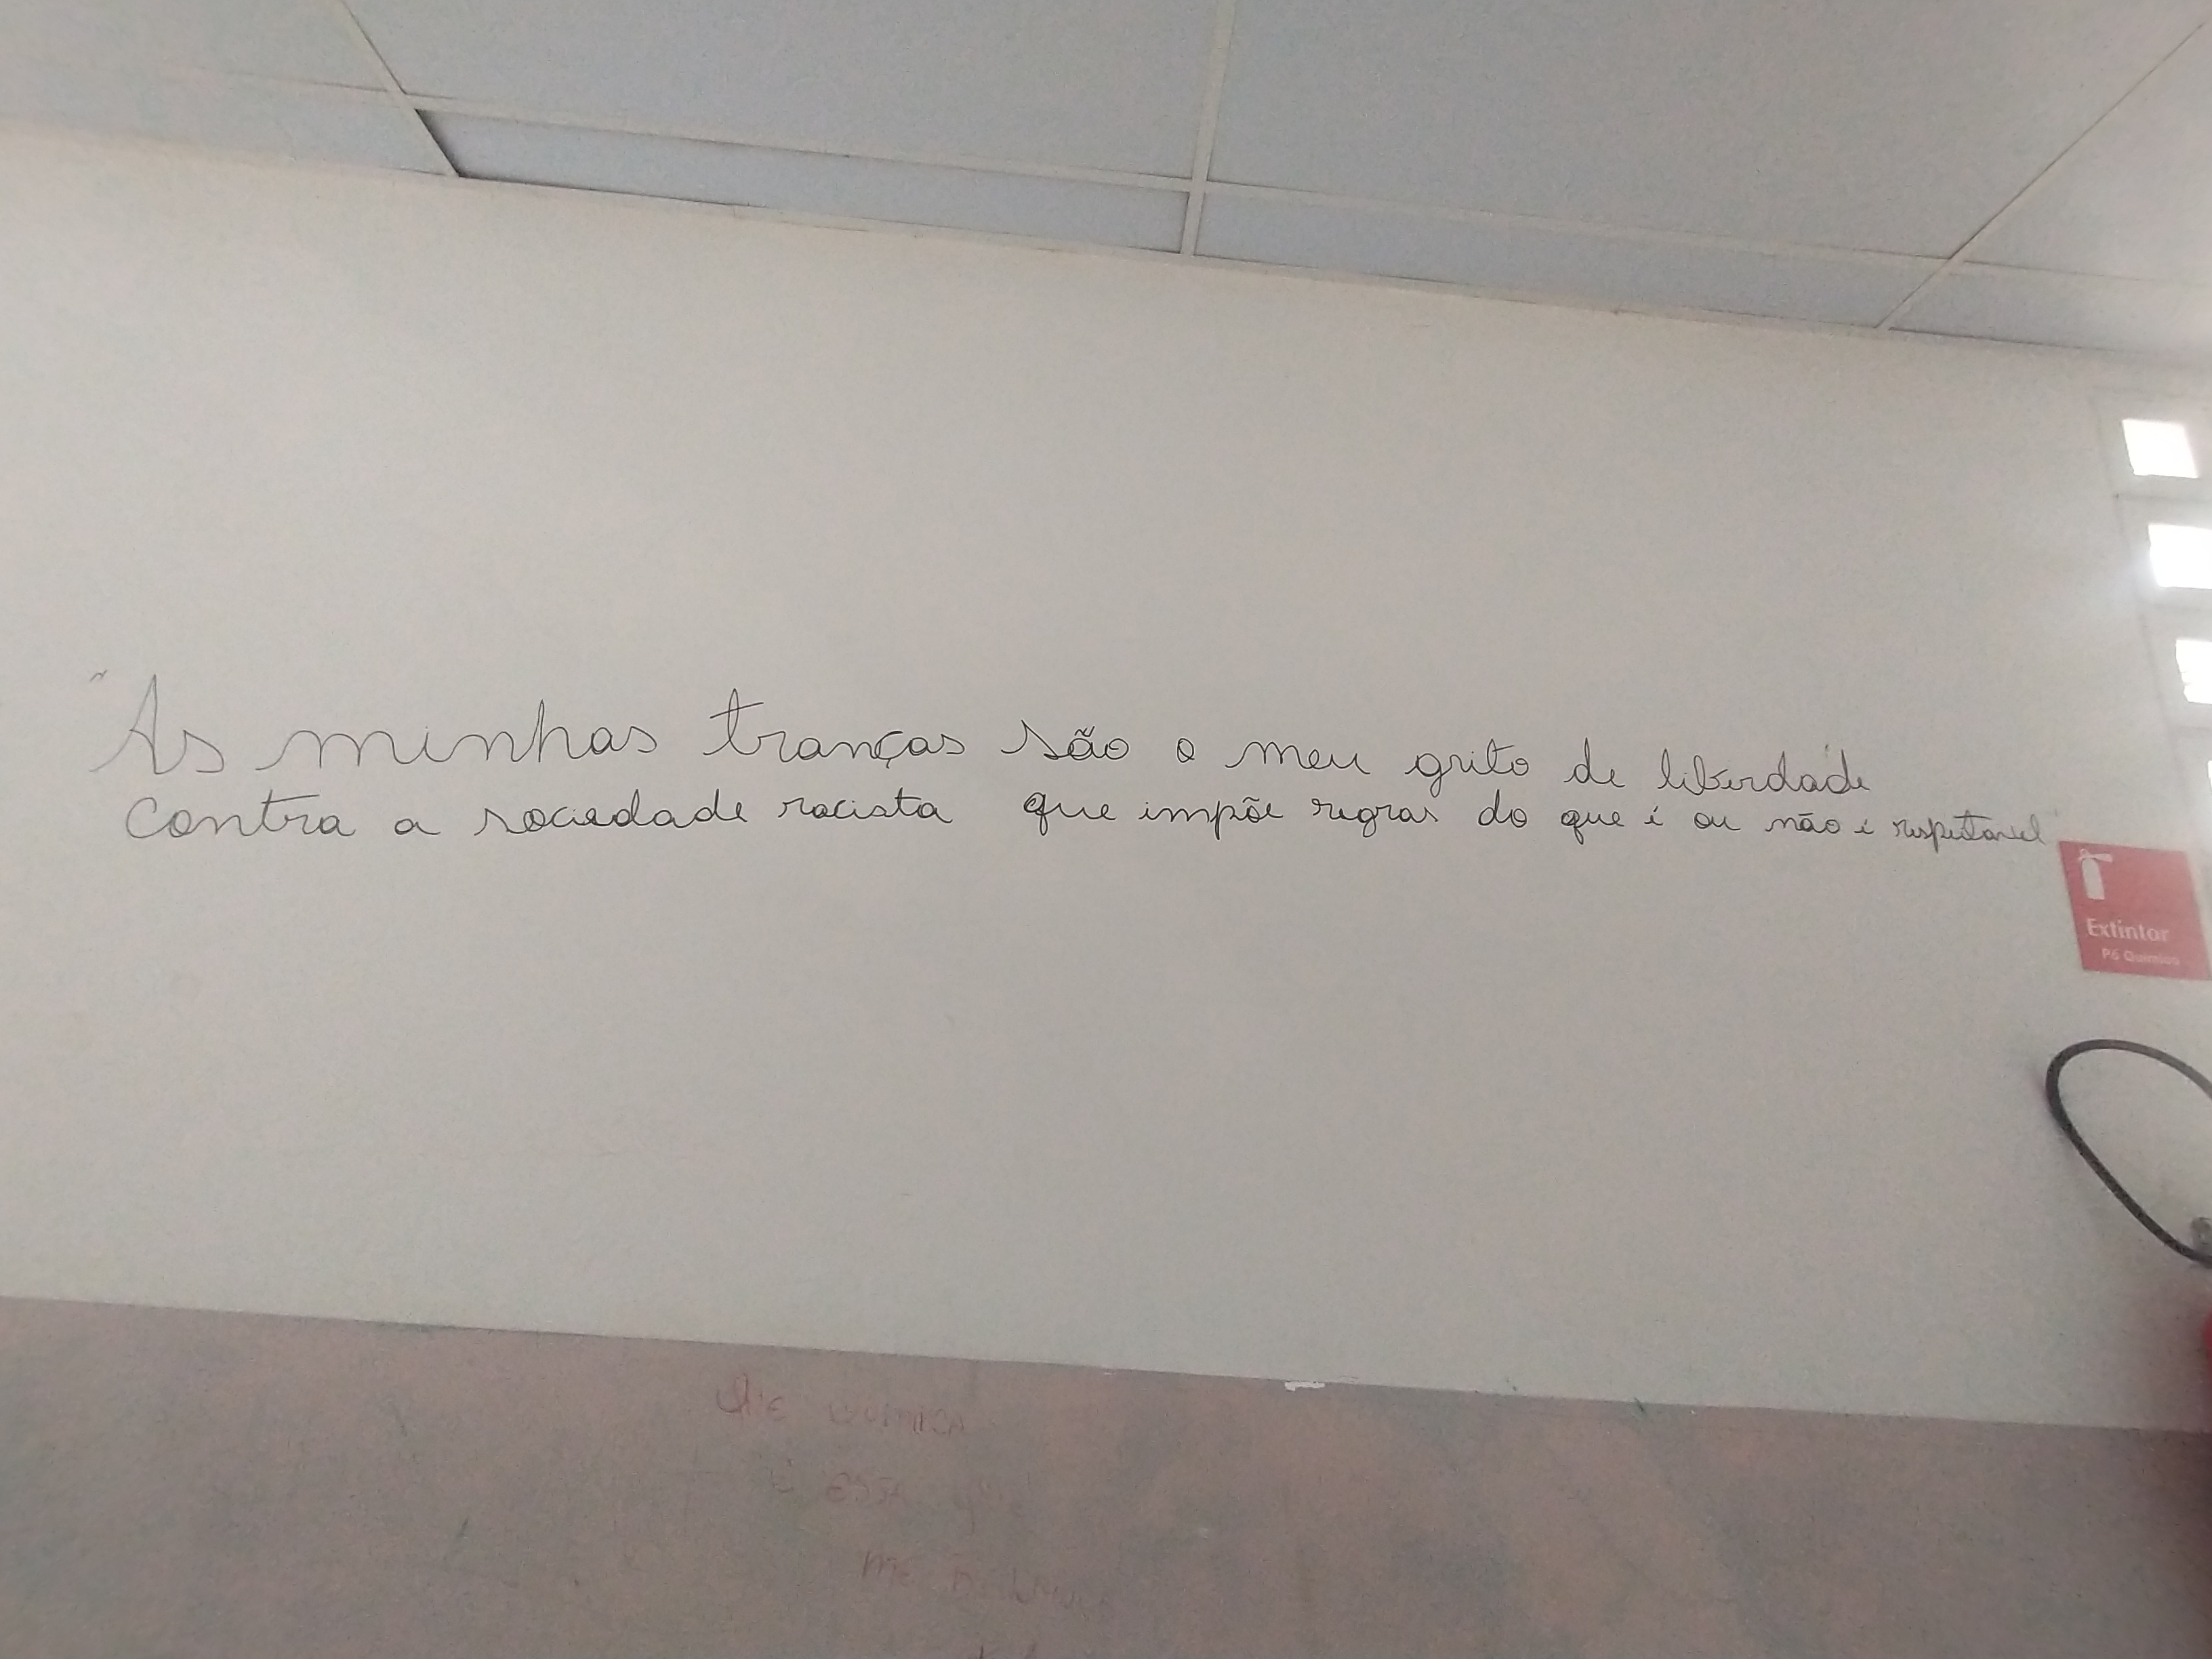 "As minhas tranças são o meu grito de liberdade
contra a sociedade racista que impõe regras do que é ou não é respeitavel"
Extintor
Pó Químico
QUE QUIMICA
É ESSA que
ME